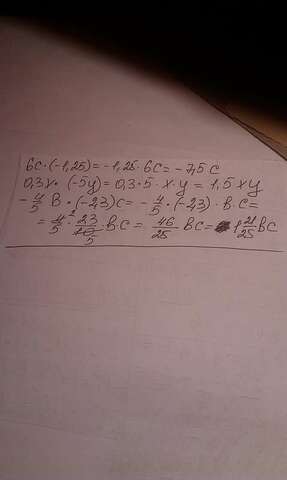 6c·(-1,25)=-1,25·6c=-7,5c
0,3x·(-5y)=0,3·5·x·y=1,5xy
-4/5 b·(-2,3)c=-4/5·(-2,3)·b·c=
=4/5·23/10 b·c=46/25 bc=1 21/25 bc